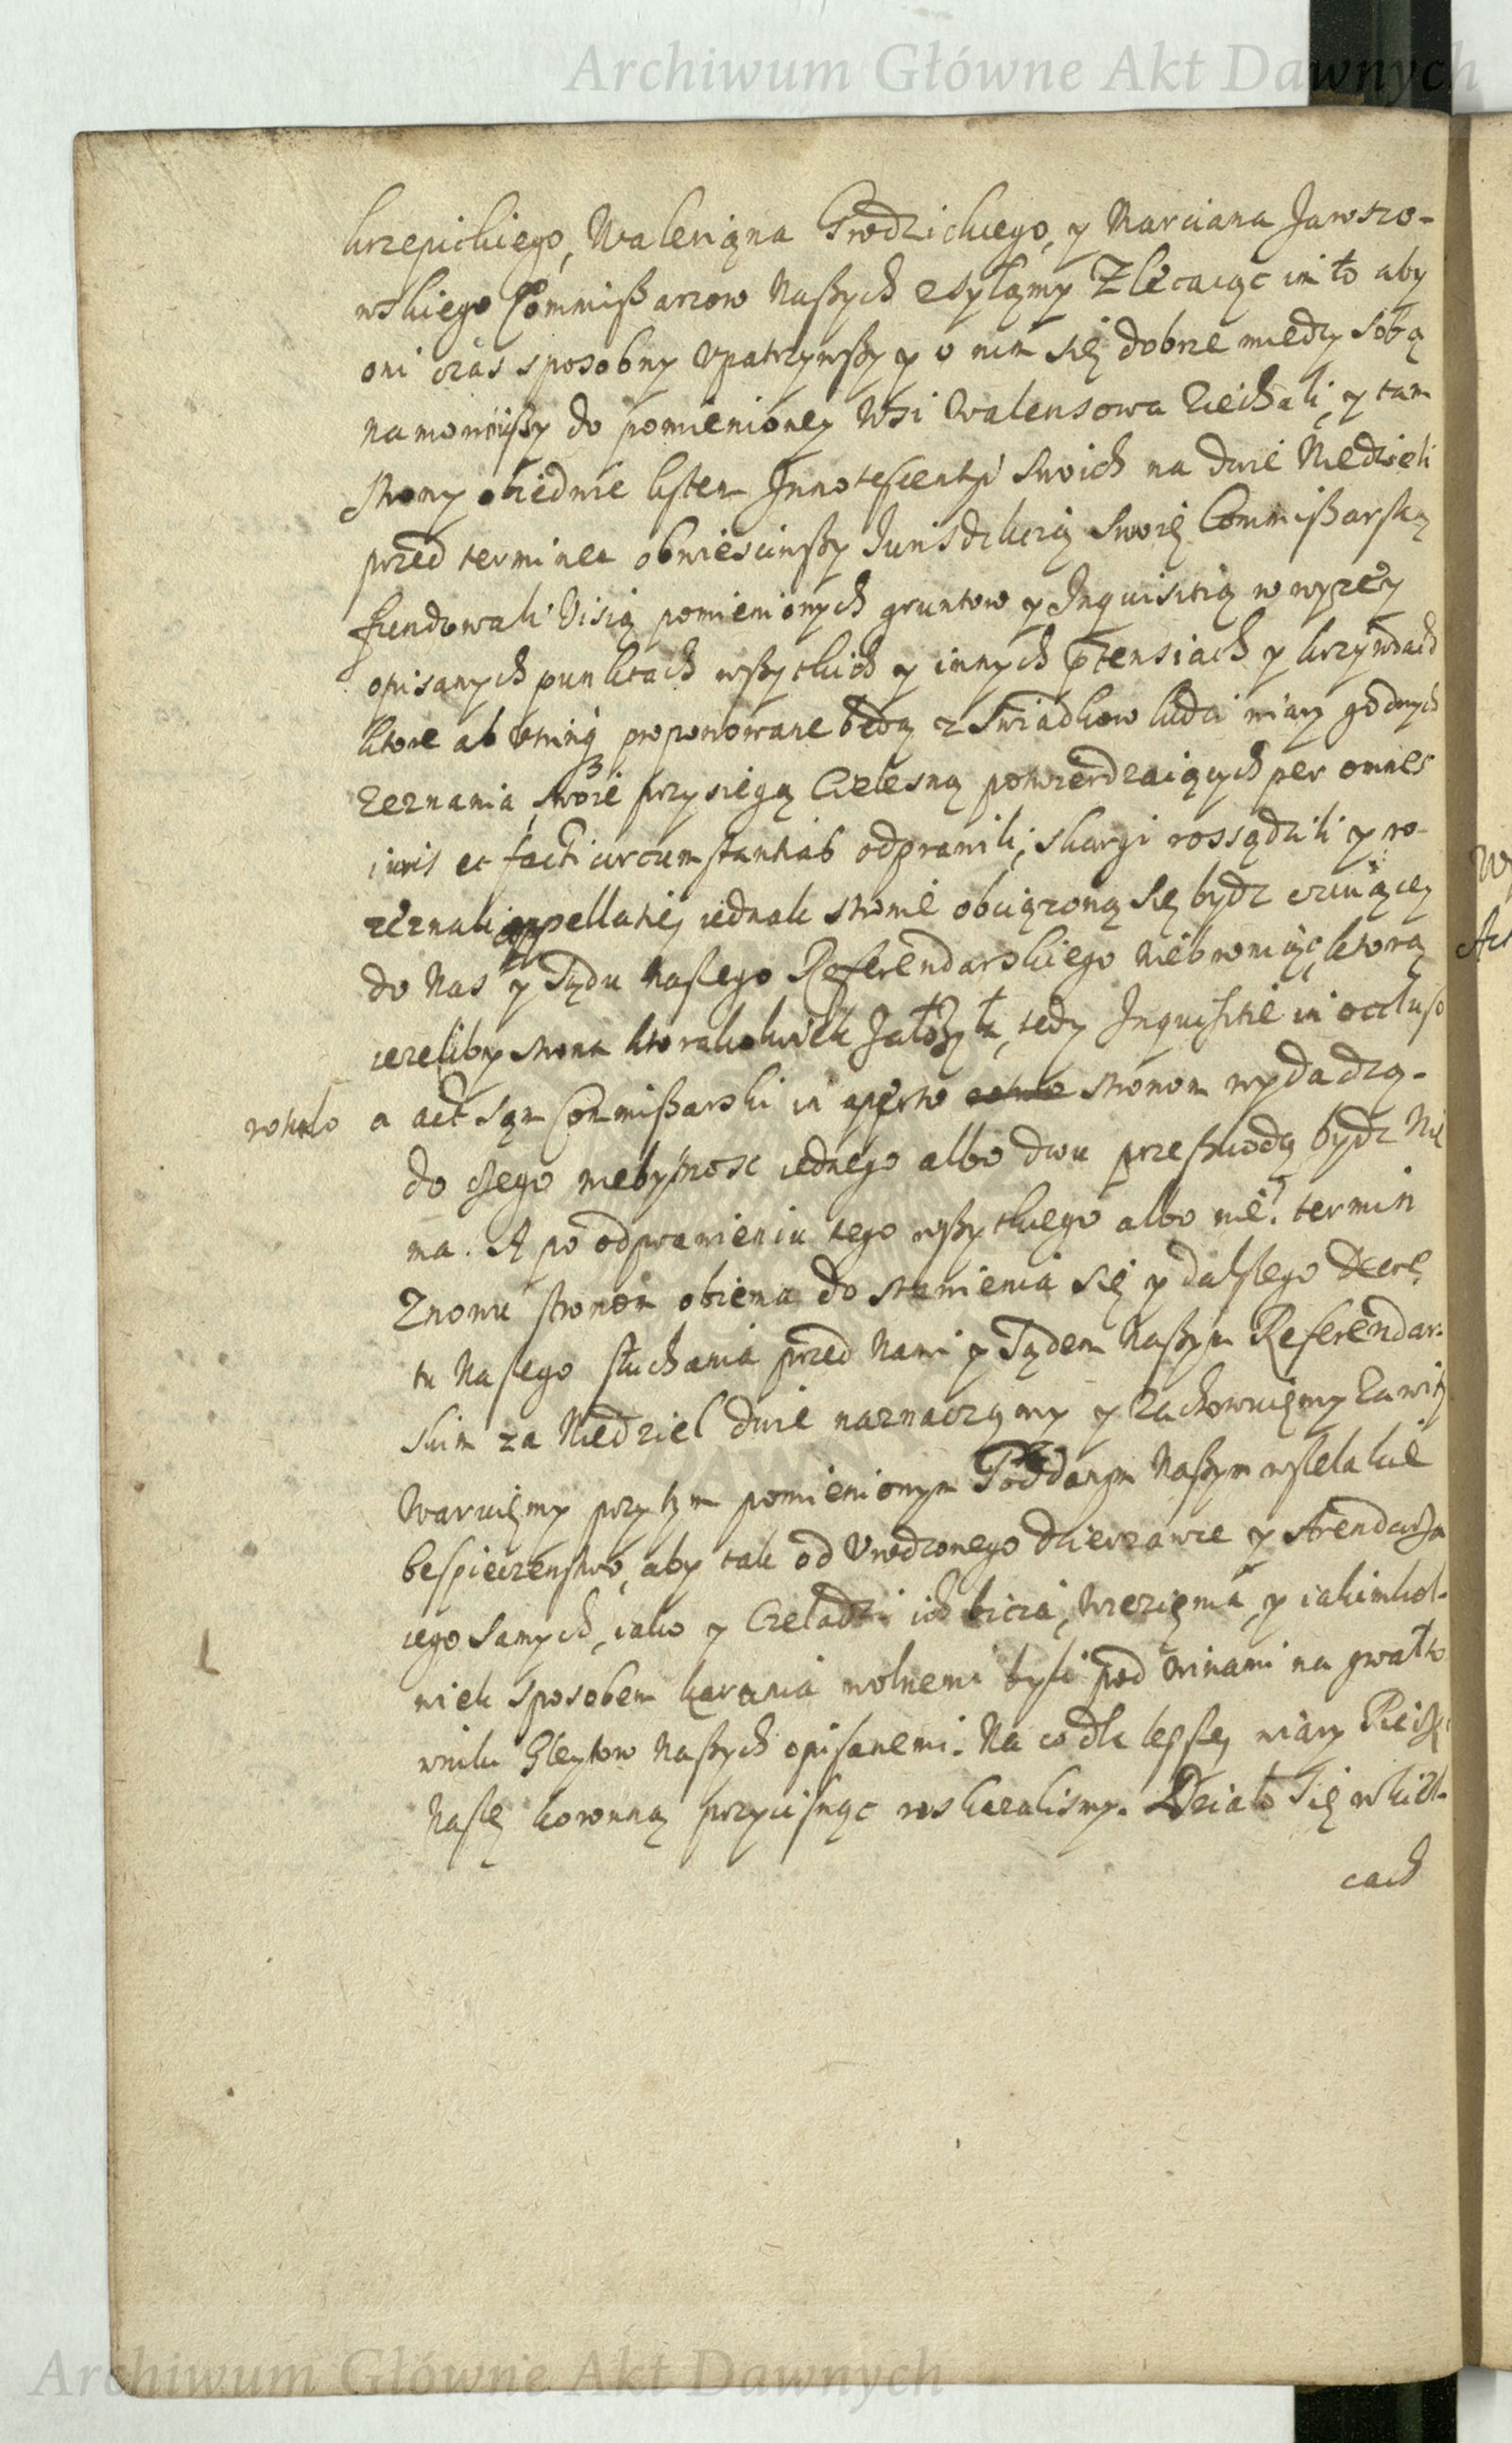 Archiwum Główne Akt Dawnych
krzepickiego, Waleriana Grodzickiego, y Marciana Jawszo-
wskiego Commißarzow Naßych zsyłamy Zlecaiąc im to aby
oni czas sposobny vpatrzywßy y o nim się dobrze miedzy sobą
namowiwßy do pomienioney Wsi Walensowa ziechali, y tam
strony obiedwie listem Innotescentiy swoich na dwie Niedzieli
przed terminem obwiesciwßy Jurisdikcią Swoię Commißarską
fundowali Visią pomienionych gruntow y Inquisitią w wyzey
opisanych punktach wßytkich y innych ptensiach y krzywdach
ktore ab utrinq proponowane będą z Swiadkow ludzi wiary godnych
Zeznania swoie przysięgą Cielesną potwierdzaiących per omnes
iuris et facti circumstantias odprawili, skargi rossądzili y ro-
zeznali appellatiey iednak stronie obciązoną się bydz czuiącey
do Nas y Sądu Naszego Referendarskiego niebroniąc, ktorą
iezeliby strona ktorakolwiek załozyła, tedy Inquisitie in occluso
rotulo a act sąm Commißarski in aperto stronom wydadzą.
do czego niebytnosc iednego albo dwu przeszkodą bydz Nie
ma. A po odprawieniu tego wßytkiego albo nie? termin
Znowu stronom obiema do stawienia się y dalszego decre
tu Naszego słuchania przed Nami y Sądem Naßym Referendar-
skim za Niedziel dwie naznaczamy y zachowuiemy zawity
Waruięmy przy tym pomienionym Poddanym Naßym wszelakie
bespieczenstwo, aby tak od Vrodzonego dzierzawce y Arendarza
iego samych, iako y Czeladzi ich bicia, Więzięnia, y iakimkol-
wiek sposobem karania wolnemi byli pod winami na gwałto
wniku Gleytow Naßych opisanemi. Na co dla lepszey wiary Pieczęc
Naszę koronną przycisnąc roskazalismy. Działo się w Kiel-
cach
Archiwum Główne Akt Dawnych